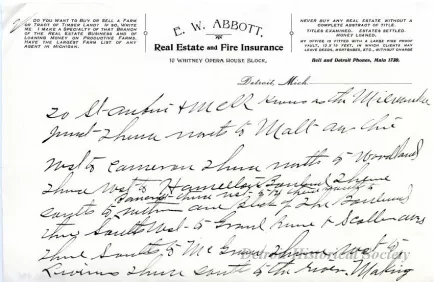 DO YOU WANT TO BUY OR SELL A FARM OR TRACT OF TIMBER LAND? IF SO, WRITE ME. I MAKE A SPECIALTY OF THAT BRANCH OF THE REAL ESTATE BUSINESS AND OF LOANING MONEY ON PRODUCTIVE FARMS. HAVE THE LARGEST FARM LIST OF ANY AGENT IN MICHIGAN.
E. W. ABBOTT,
Real Estate and Fire Insurance
10 WHITNEY OPERA HOUSE BLOCK,
NEVER BUY ANY REAL ESTATE WITHOUT A COMPLETE ABSTRACT OF TITLE.
TITLES EXAMINED. ESTATES SETTLED.
MONEY LOANED.
MY OFFICE IS FITTED WITH A LARGE FIRE PROOF VAULT, IN WHICH CLIENTS MAY LEAVE DEEDS, MORTGAGES, ETC., WITHOUT CHARGE
Bell and Detroit Phones, Main 1738.
Detroit, Mich.
To St Aubin + known as the Milwaukee
Junct thence north to
West to Cameron thence north to Woodland
thence West to Hamilton Boulevard thence
South to and West of the Boulevard
thence South West to Grand River + Scotten aves
thence South to McGraw thence West to
Livernois thence south to the river. Making
Detroit Historical Society